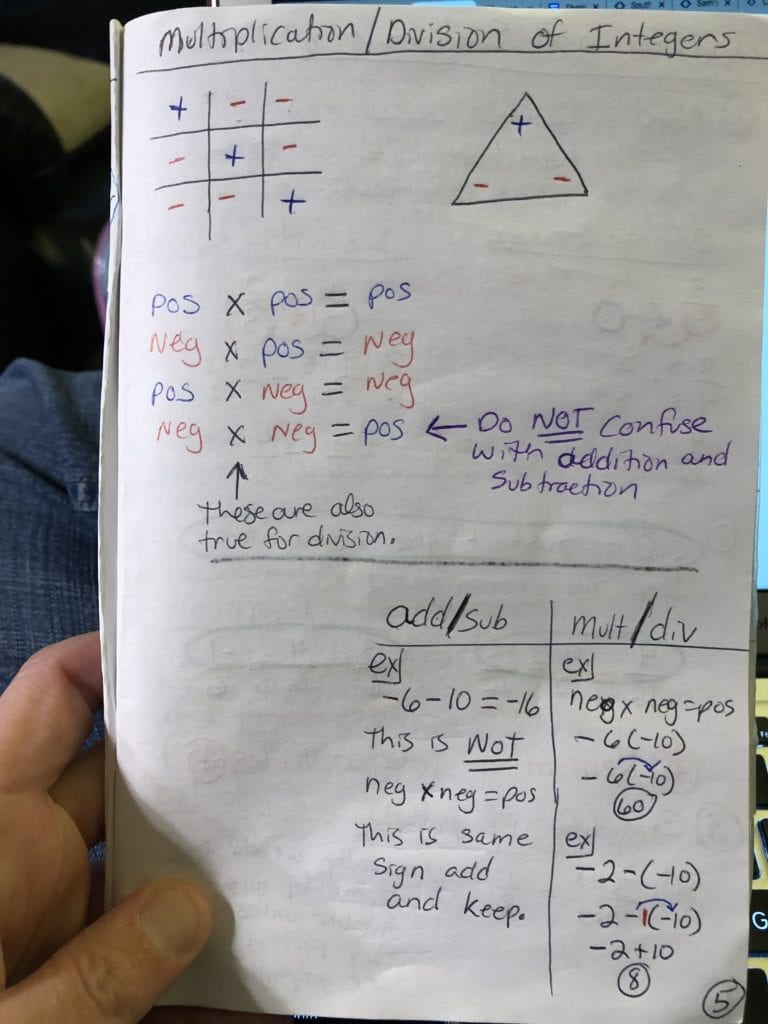 Multiplication/Division of Integers
+ - -
- + -
- - +
+
- -
pos x pos = pos
Neg x pos = Neg
pos x Neg = Neg
Neg x Neg = pos ← Do NOT confuse
with addition and
Subtraction
↑
These are also
true for division.
add/sub
ex
-6-10=-16
This is NOT
neg x neg=pos
This is same
sign add
and keep.
mult/div
ex
neg x neg=pos
-6(-10)
-6(-10)
60
ex
-2-(-10)
-2-1(-10)
-2+10
8
5
South
Sam's
G